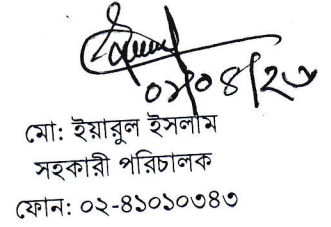 ০২/০৪/২৩
মো: ইয়ারুল ইসলাম
সহকারী পরিচালক
ফোন: ০২-৪১০১০৩৪৩